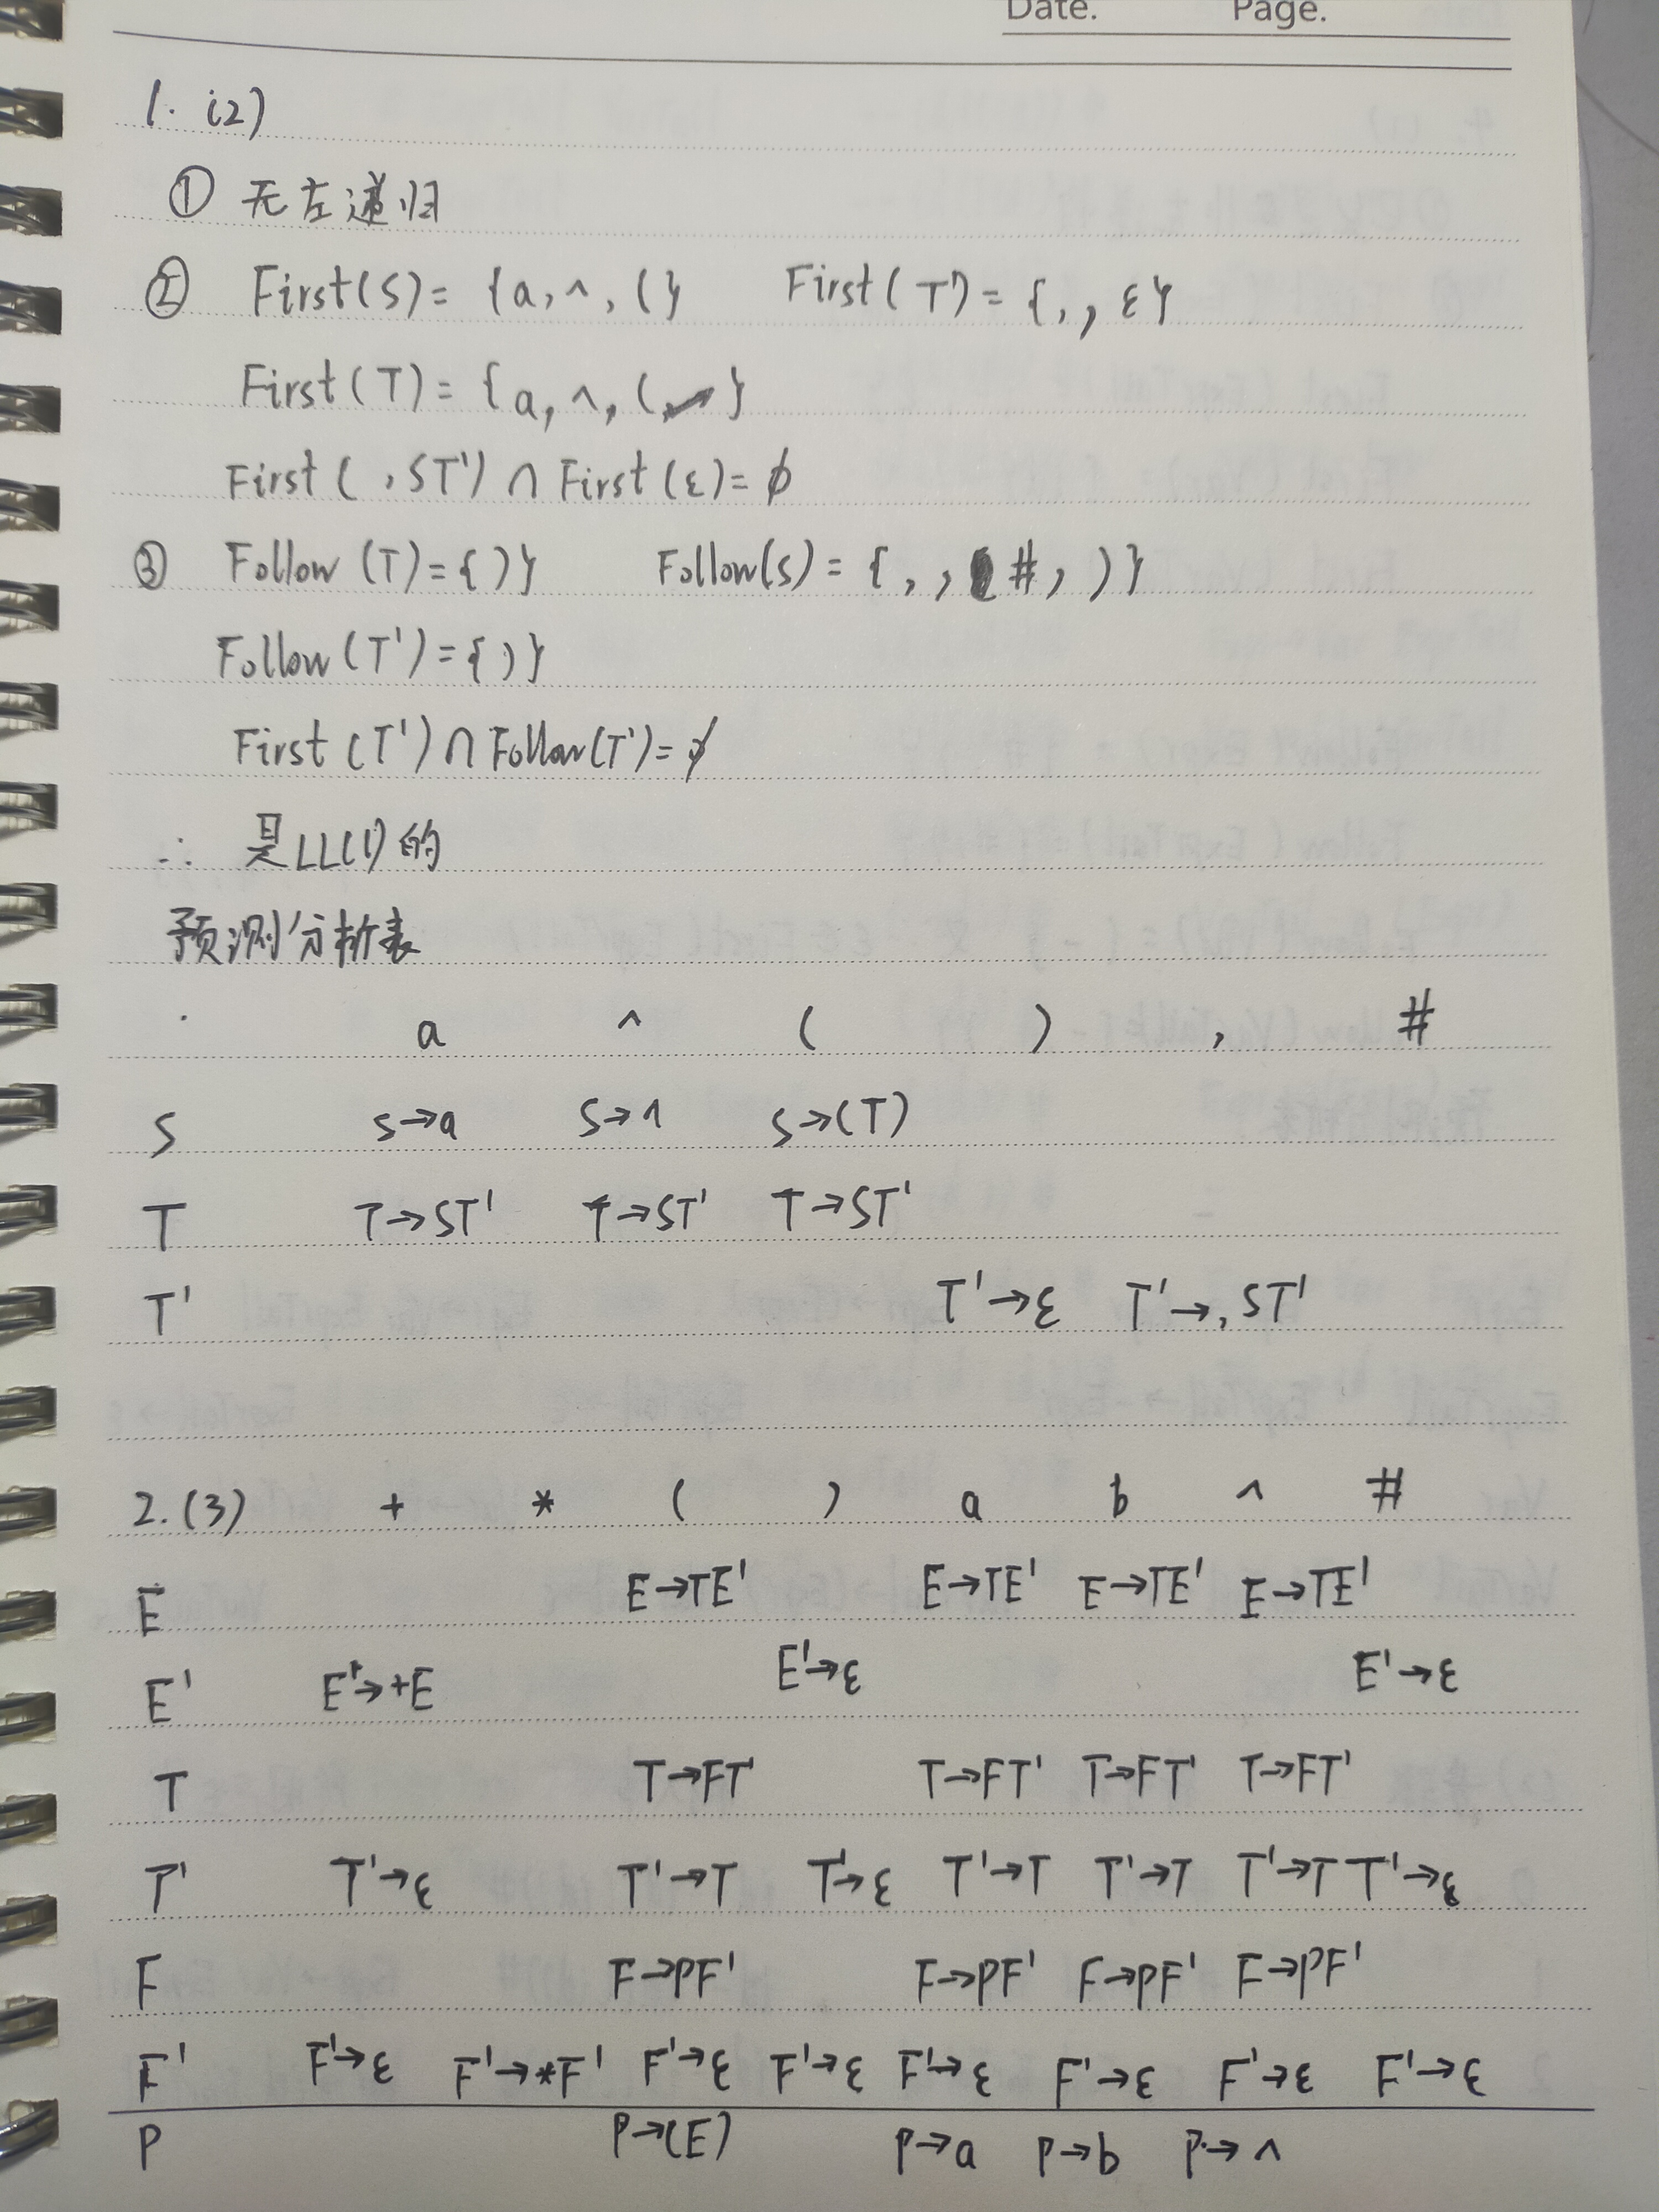 Date. Page.
1. (2)
① 无左递归
② First(S)= {a, ^, (} First(T')= {, , ε}
First(T)= {a, ^, (}
First( ,ST') ∩ First(ε)= ϕ
③ Follow(T)={ )} Follow(S)= { , , #, )}
Follow(T')={ )}
First(T')∩Follow(T')=ϕ
∴ 是LL(1)的
预测分析表
a ^ ( ) , #
S S→a S→^ S→(T)
T T→ST' T→ST' T→ST'
T' T'→ε T'→,ST'
2.(3) + * ( ) a b ^ #
E E→TE' E→TE' E→TE' E→TE'
E' E'→+E E'→ε E'→ε
T T→FT' T→FT' T→FT' T→FT'
T' T'→ε T'→T T'→ε T'→T T'→T T'→T T'→ε
F F→PF' F→PF' F→PF' F→PF'
F' F'→ε F'→*F' F'→ε F'→ε F'→ε F'→ε F'→ε F'→ε
P P→(E) P→a P→b P→^